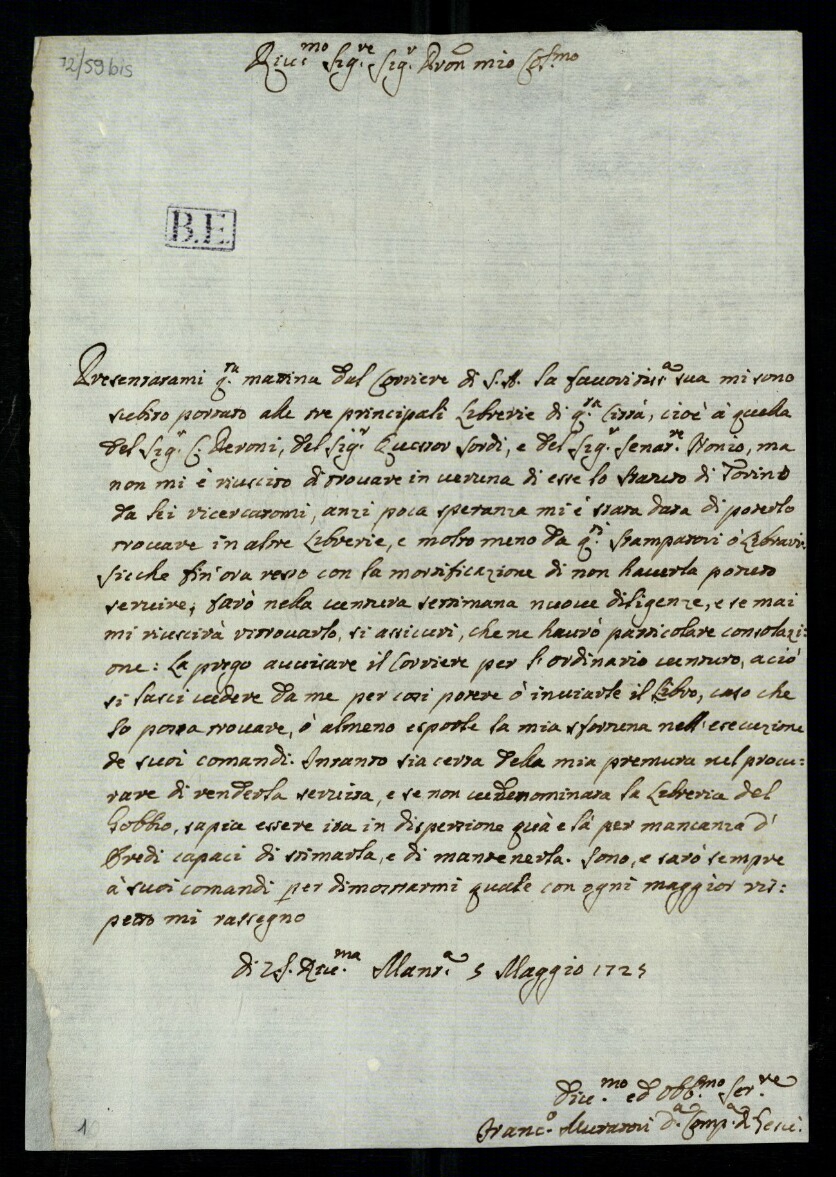 72/59bis
Riv.mo Sig.re Sig.r Pron mio Col.mo
B.E.
Presentatami q.ta matina dal Corriere di S.A. la favoritiss.a sua mi sono
subito portato alle tre principali Librerie di q.ta Città, cioè à quella
del Sig.r C. Peroni, del Sig.r Questor Sordi, e del Sig.r Senat.re Nonio, ma
non mi è riuscito di trovare in veruna di esse lo Statuto di Torino
da Lei ricercatomi, anzi poca speranza mi è stata data di poterlo
trovare in altre Librerie, e molto meno da q.ti Stampatori ò Librari.
Sicche fin'ora resto con la mortificazione di non haverla potuto
servire; farò nella ventura settimana nuove diligenze, e se mai
mi riuscirà ritrovarlo, si assicuri, che ne haurò particolare consolazi=
one: La prego avvisare il Corriere per l'ordinario venturo, aciò
si lasci vedere da me per così potere ò inviarle il Libro, caso che
lo possa trovare, ò almeno esporle la mia sfortuna nell'esecuzione
de suoi comandi. Intanto sia certa della mia premura nel procu=
rare di renderla servita, e se non vede nominata la Libreria del
Gobbio, sapia essere ita in dispersione quà e là per mancanza d'
Eredi capaci di stimarla, e di mantenerla. Sono, e sarò sempre
à suoi comandi per dimostrarmi quale con ogni maggior ris=
petto mi rassegno
di V.S. Riv.ma Mant.a 5 Maggio 1725
Div.mo ed Obb.mo Ser.re
Franc.o Muratori d.a Comp.a di Gesù.
1